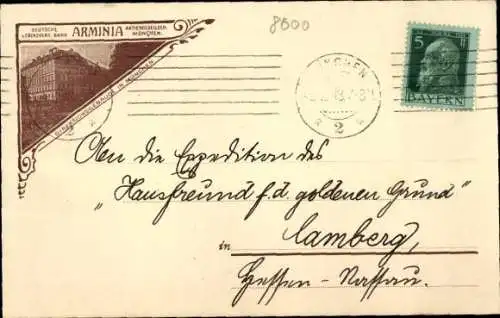 8600
DEUTSCHE ARMINIA AKTIENGESELLSCH.
MÜNCHEN.
5 Pf
BAYERN
MÜNCHEN
2
An die Expedition des
„Hausfreund f. d. goldenen Grund"
in Camberg,
Hessen-Nassau.